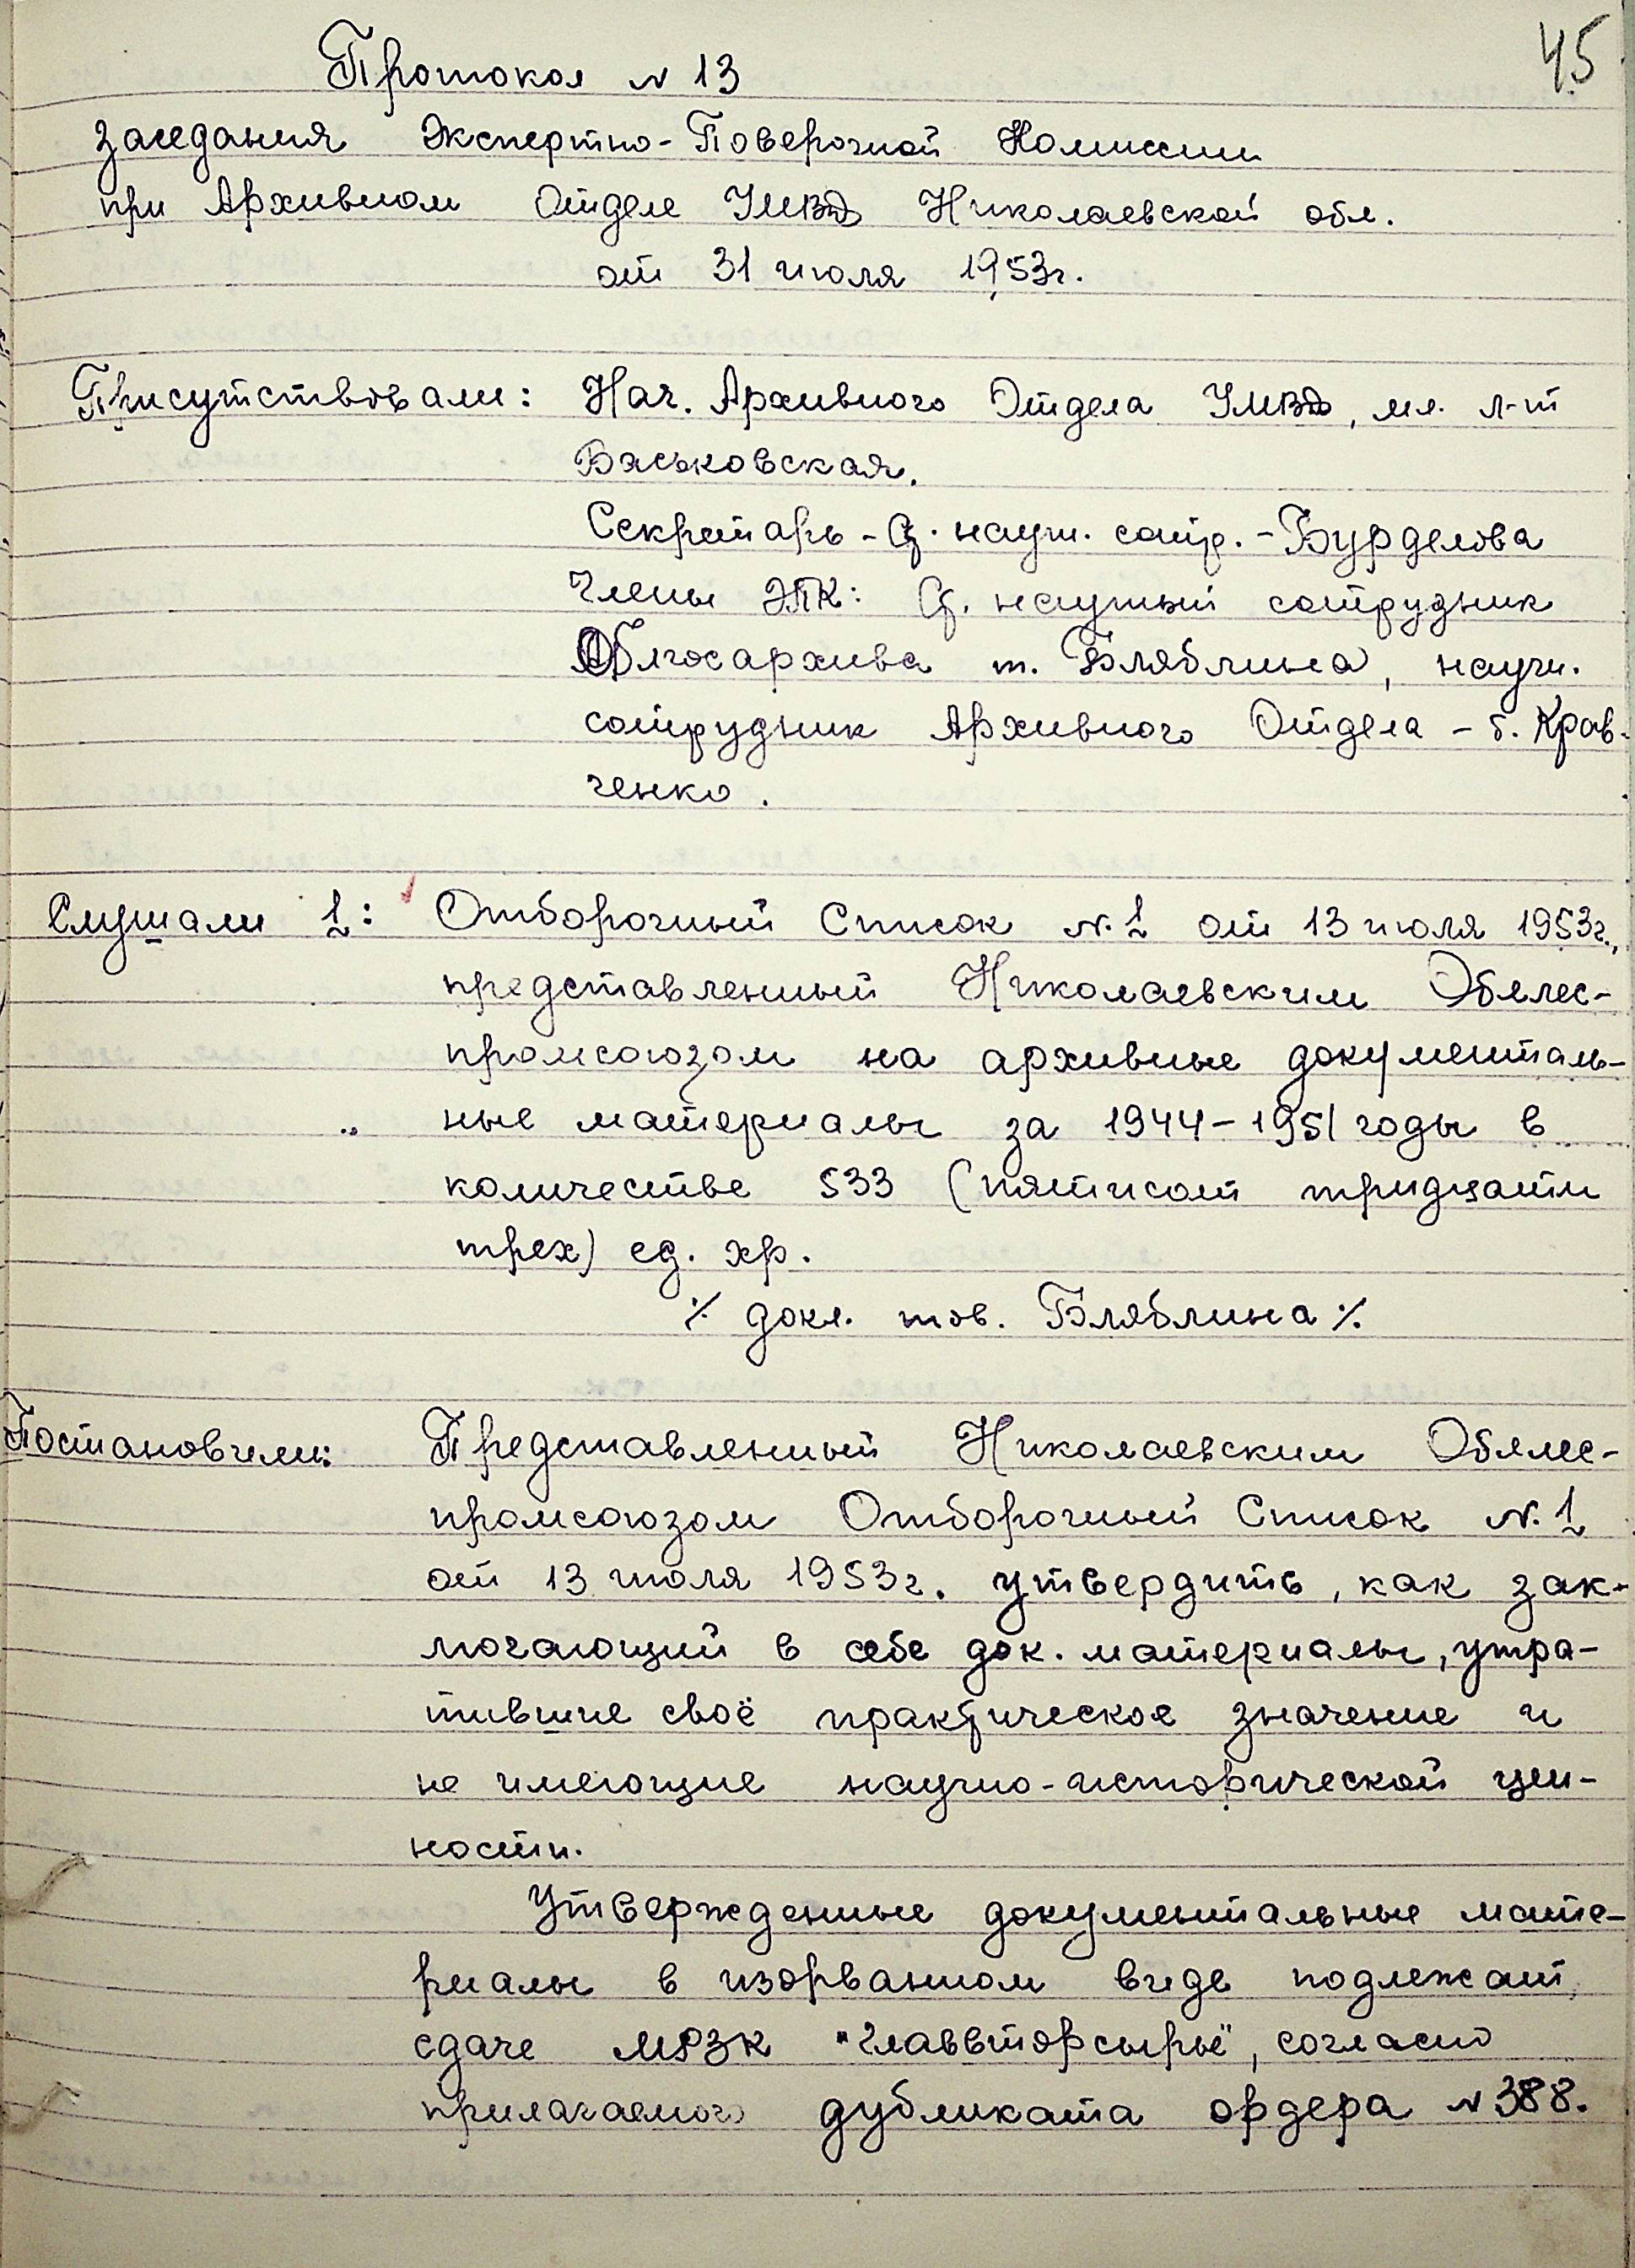 45
Протокол N 13
заседания Экспертно-Поверочной Комиссии
при Архивном Отделе УМВД Николаевской обл.
от 31 июля 1953г.
Присутствовали: Нач. Архивного Отдела УМВД, мл. л-т
Васьковская.
Секретарь - Ст. научн. сотр. - Бурделова
Члены ЭПК: Ст. научный сотрудник
Облгосархива т. Бляблина, научн.
сотрудник Архивного Отдела - т. Крав-
ченко.
Слушали 1: Отборочный Список N.1 от 13 июля 1953г.,
представленный Николаевским Облес-
промсоюзом на архивные документаль-
ные материалы за 1944-1951 годы в
количестве 533 (пятисот тридцати
трех) ед. хр.
% докл. тов. Бляблина %
Постановили: Представленный Николаевским Облес-
промсоюзом Отборочный Список N.1
от 13 июля 1953г. утвердить, как зак-
лючающий в себе док. материалы, утра-
тившие своё практическое значение и
не имеющие научно-исторической цен-
ности.
Утвержденные документальные мате-
риалы в изорванном виде подлежат
сдаче МРЗК "Главвторсырьё", согласно
прилагаемого дубликата ордера N 388.